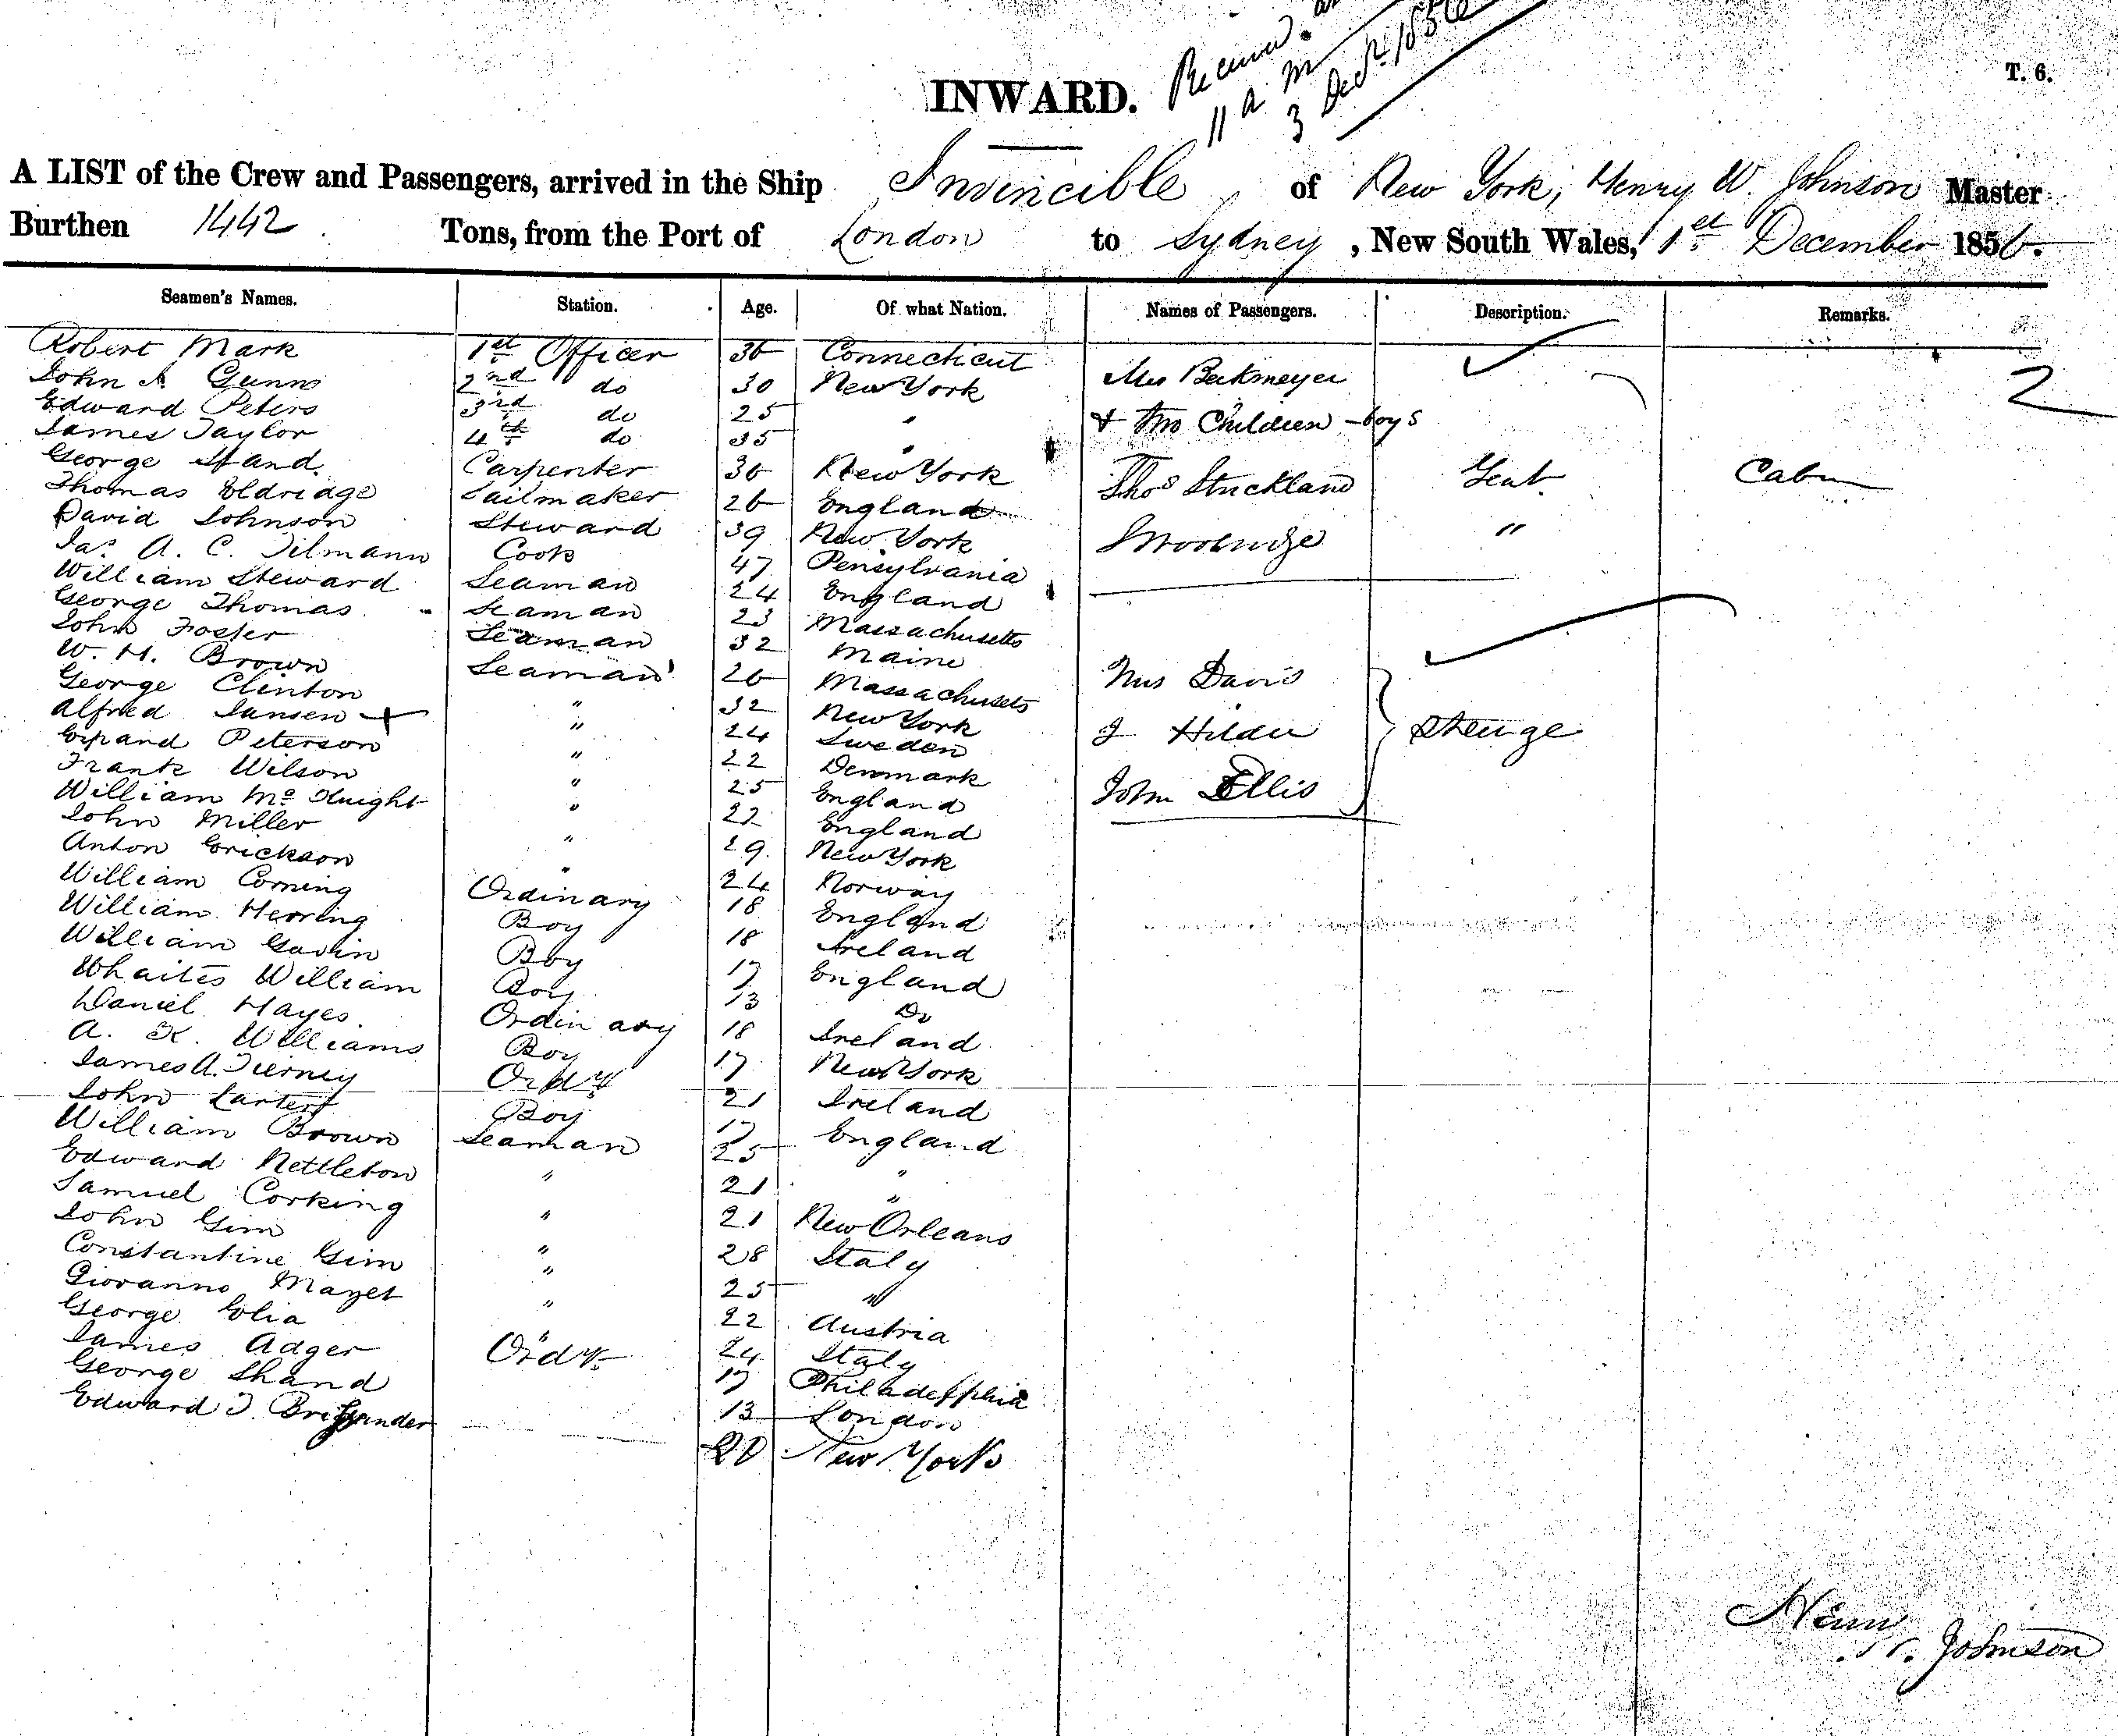 Received
11 a m
3 Decr 1856
INWARD.
T. 6.
A LIST of the Crew and Passengers, arrived in the Ship Invincible of New York, Henry W. Johnson Master
Burthen 1442 Tons, from the Port of London to Sydney, New South Wales, 1st December 1856.
Seamen's Names. Station. Age. Of what Nation. Names of Passengers. Description. Remarks.
Robert Mark 1st Officer 36 Connecticut
John A. Gunn 2nd do 30 New York Mrs Beckmeyer 2
Edward Peters 3rd do 25 " & two Children - boys
James Taylor 4th do 35 "
George Hand. Carpenter 36 New York Thos Strickland Gent Cabin
Thomas Eldridge Sailmaker 26 England
David Johnson Steward 39 New York "
Jas A. C. Tilmann Cook 47 Pensylvania
William Steward Seaman 24 England
George Thomas Seaman 23 Massachusetts
John Foster Seaman 32 Maine
W. H. Brown Seaman 26 Massachusets Mrs Davis
George Clinton " 32 New York
Alfred Jansen + " 24 Sweden J Steerage
Peterson " 22 Denmark
Frank Wilson " 25 England John Ellis
William McKnight " 22 England
John Miller " 29. New York
Anton Erickson " 24 Norway
William Corning Ordinary 18 England
William Herring Boy 18 Ireland
William Gavin Boy 17 England
Whaites William Boy 13 Do
Daniel Hayes. Ordinary 18 Ireland
A. K. Williams Boy 17 New York
James A. Tierney Ordy 21 Ireland
John Boy 17 England
William Brown Seaman 25 "
Edward Nettleton " 21 "
Samuel Corking " 21 New Orleans
John Gim " 28 Italy
Constantine Gim " 25 "
Giovanno Mazet " 22 Austria
George Elia " 24 Italy
James Adger Ordy 17 Philadelphia
George Shand 13 London
Edward J. 20 New York
Henry W. Johnson